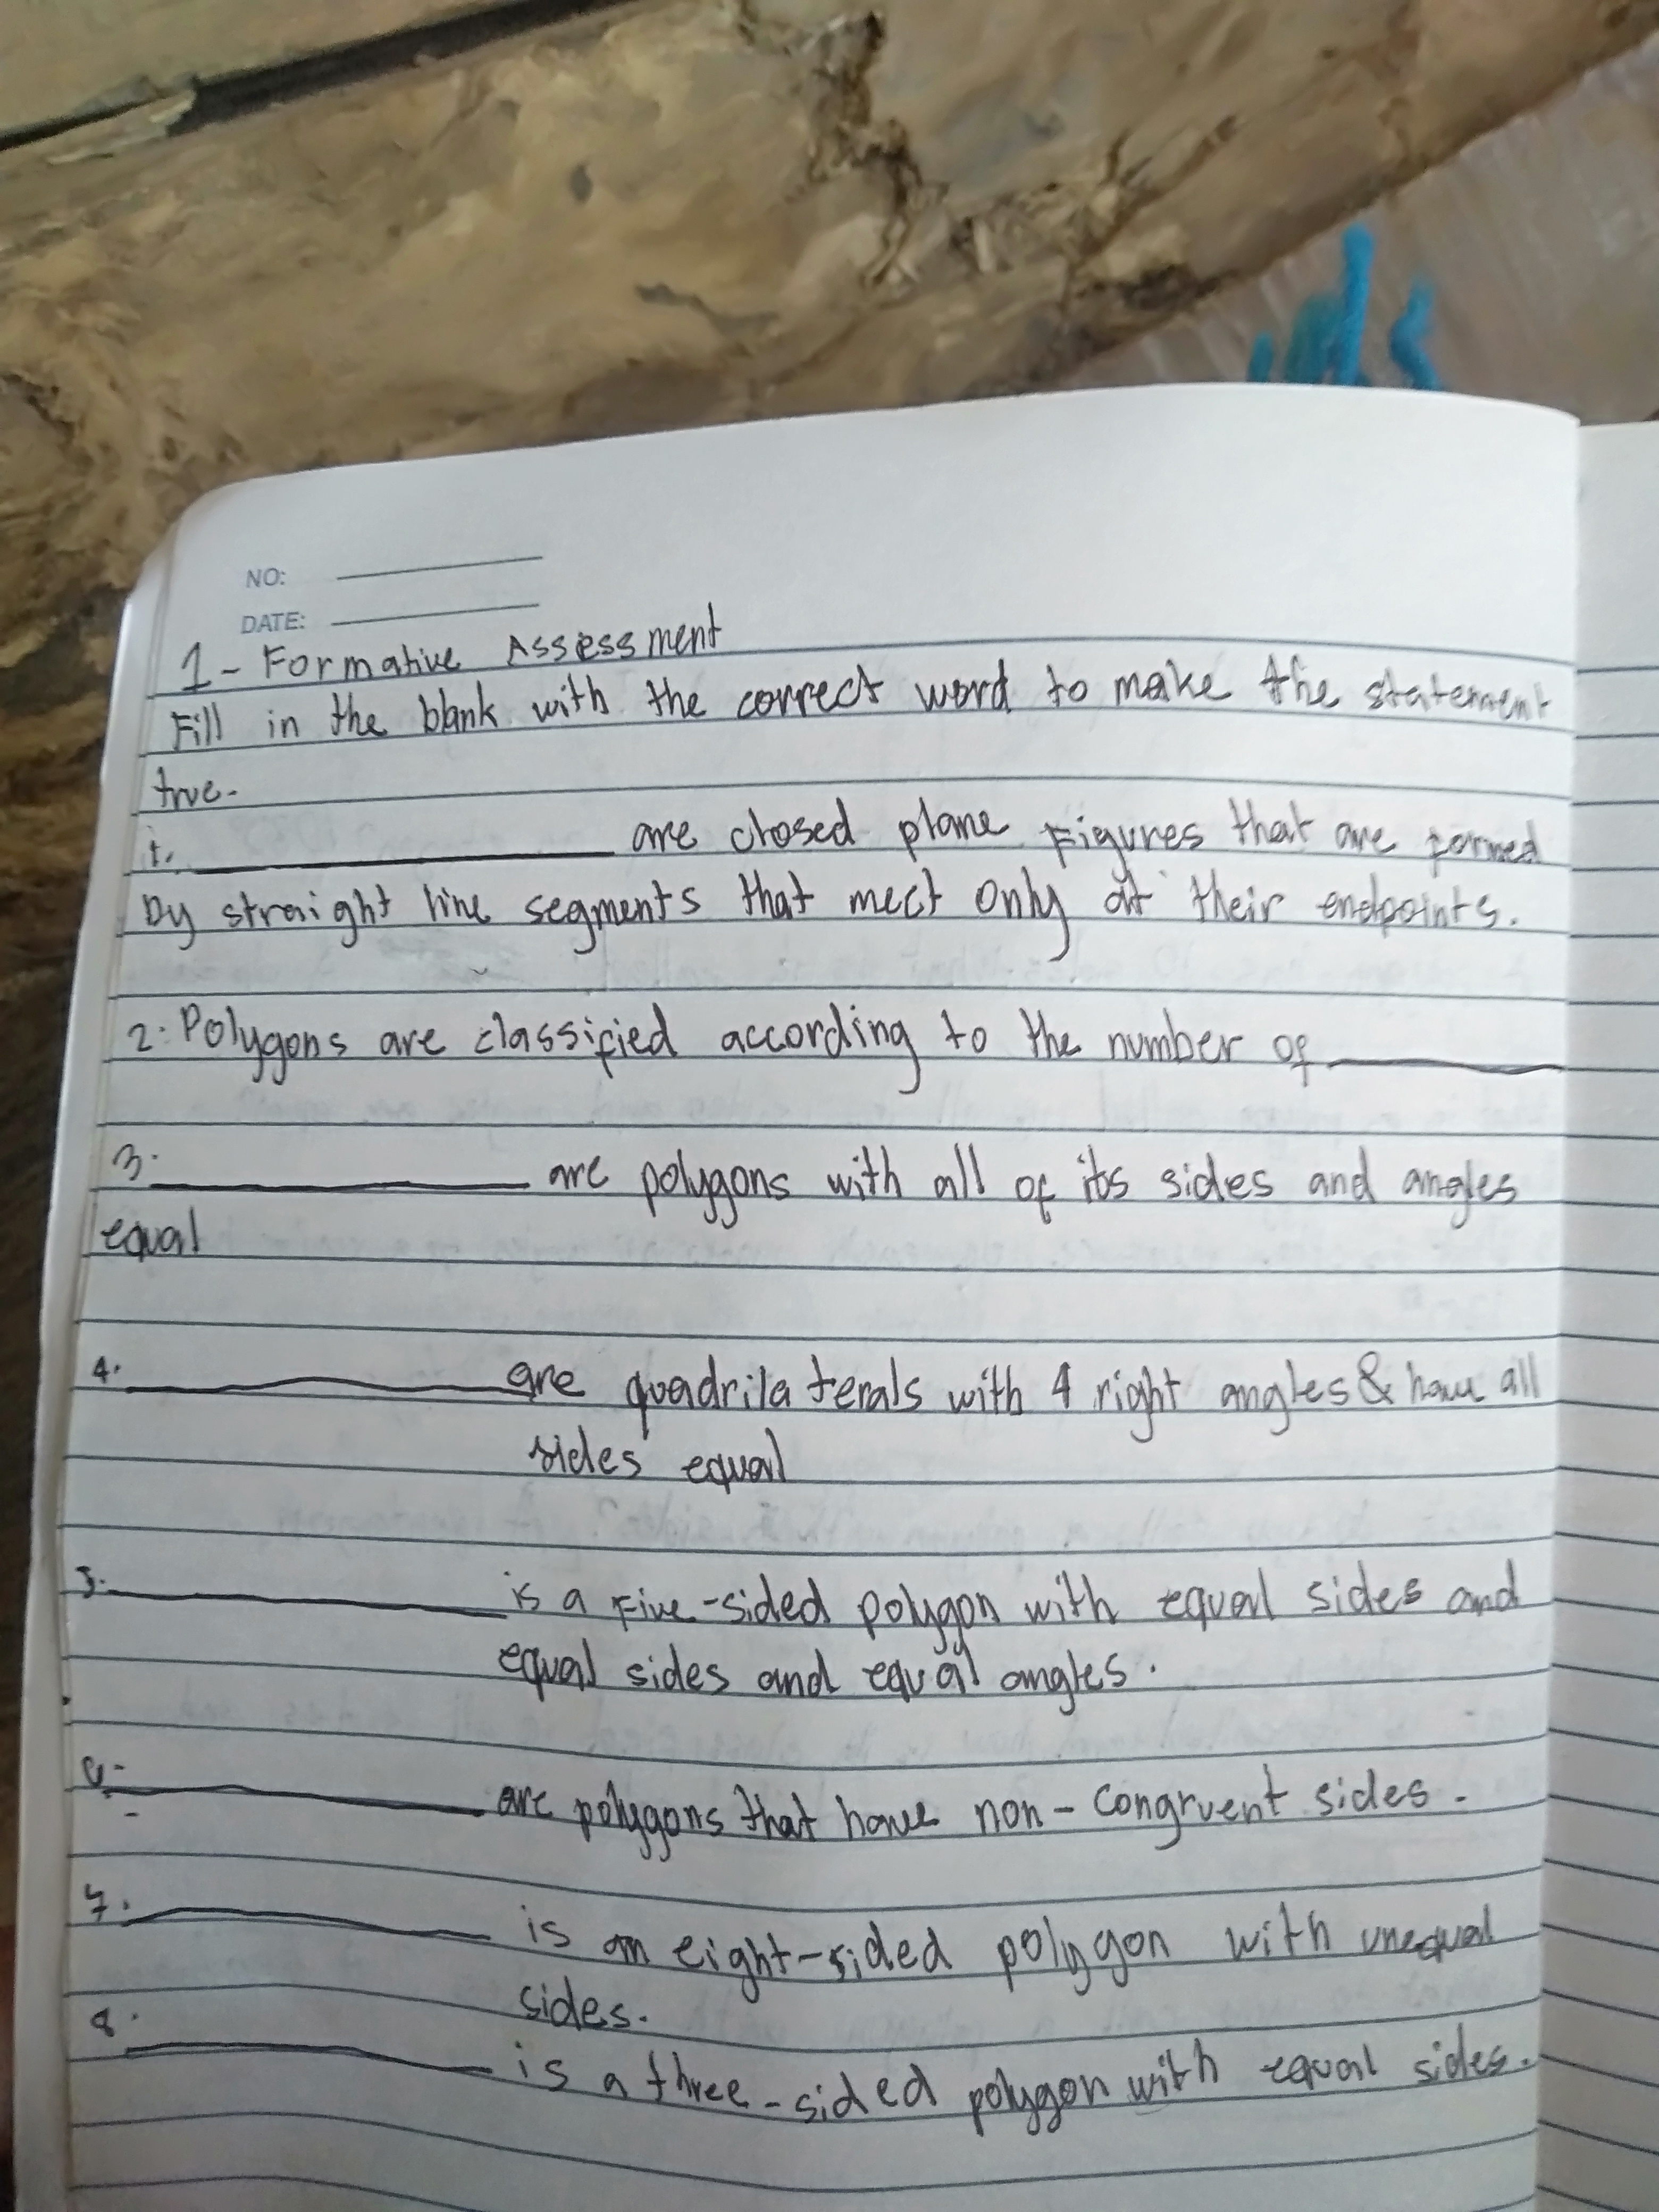 NO:
DATE:
1- Formative Assessment
Fill in the blank with the correct word to make the statement
true-
1. are closed plane Figures that are formed
by straight line segments that meet only at their endpoints.
2. Polygons are classified according to the number of
3. are polygons with all of its sides and angles
equal
4. are quadrilaterals with 4 right angles & have all
sides equal
5. is a Five-sided polygon with equal sides and
equal sides and equal angles.
6- are polygons that have non-congruent sides.
7. is an eight-sided polygon with unequal
sides.
8. is a three-sided polygon with equal sides.